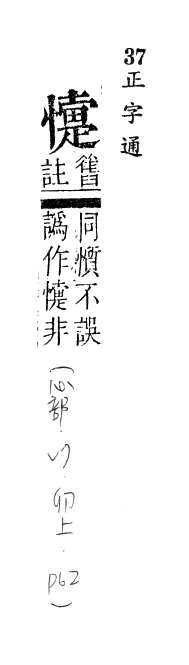 37 正字通
懥
舊註
同懫不誤
譌作懥非
(心部. . 卯上. P62)